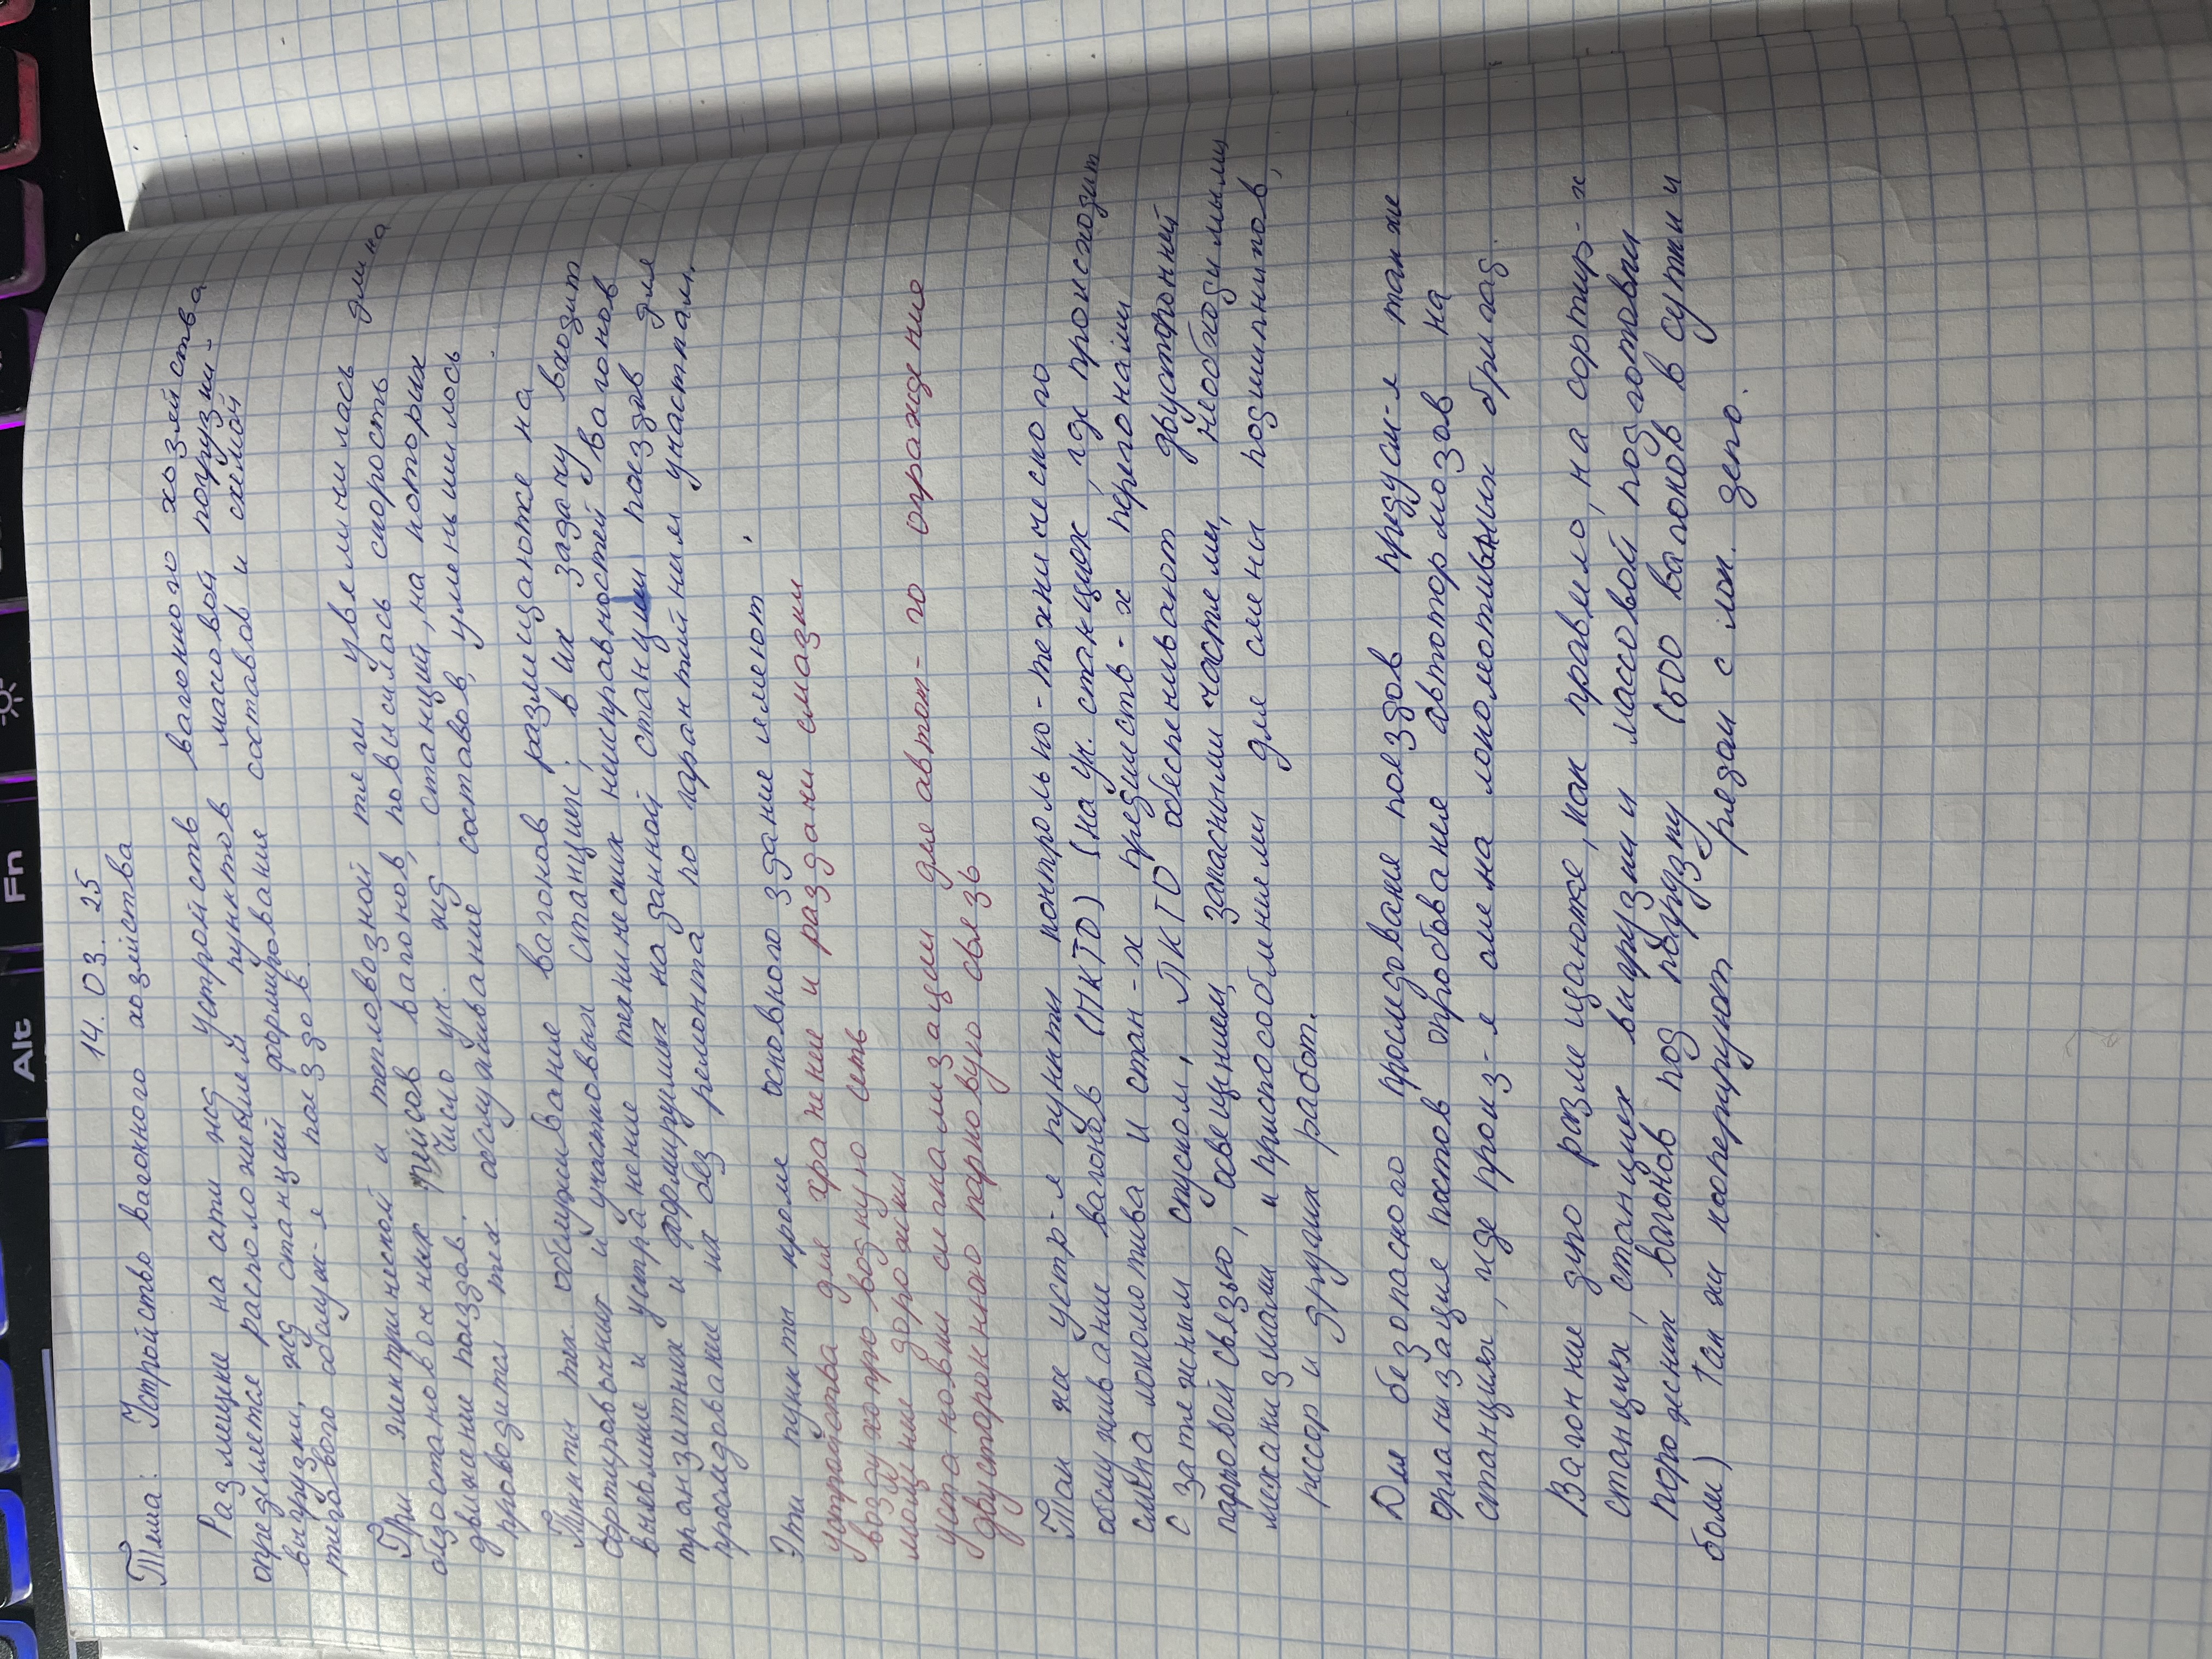 14. 03. 25
Тема: Устройство вагонного хозяйства
Размещение на сети жд устройств вагонного хозяйства
определяется расположением пунктов массовой погрузки-
выгрузки, жд станций формирование составов и схемой
тягового обслуж-я поездов.
При электрической и тепловозной тяги увеличилась длина
безостановочных рейсов вагонов, повысилась скорость
движение поездов. Число уч. жд. станций, на которых
проводится тех обслуживание составов, уменьшилось.
Пункты тех обслуживание вагонов размещаются на
сортировочных и участковых станциях; в их задачу входит
выявление и устранение технических неисправностей вагонов
транзитных и формируемых на данной станции поездов для
проследование их без ремонта по гарантийным участкам.
Эти пункты кроме основного здание имеют:
устройства для хранение и раздачи смазки
воздухопроводную сеть
установки сигнализации для автом-го ограждение
двустороннюю парковую связь
Так же устр-я пункты контрольно-технического
обслуживание вагонов (ПКТО) (на уч. станциях, где происходит
смена локомотива и стан-х предшеств-х перегонами
с затяжным спуском, ПКТО обеспечивают двусторонней
парковой связью, освещением, запасными частями, необходимыми
механизмами и приспособлением для смены подшипников,
рессор и других работ.
Для безопасного проследование поездов предусм-я также
организация постов опробование автотормозов на
станциях, где произ-я смена локомотивных бригад.
Вагонные депо размещаются, как правило, на сортир-х
станциях, станциях выгрузки и массовой подготовки
порожних вагонов под погрузку (500 вагонов в сутки и
боли) так же кооперируют рядом с лок. депо.